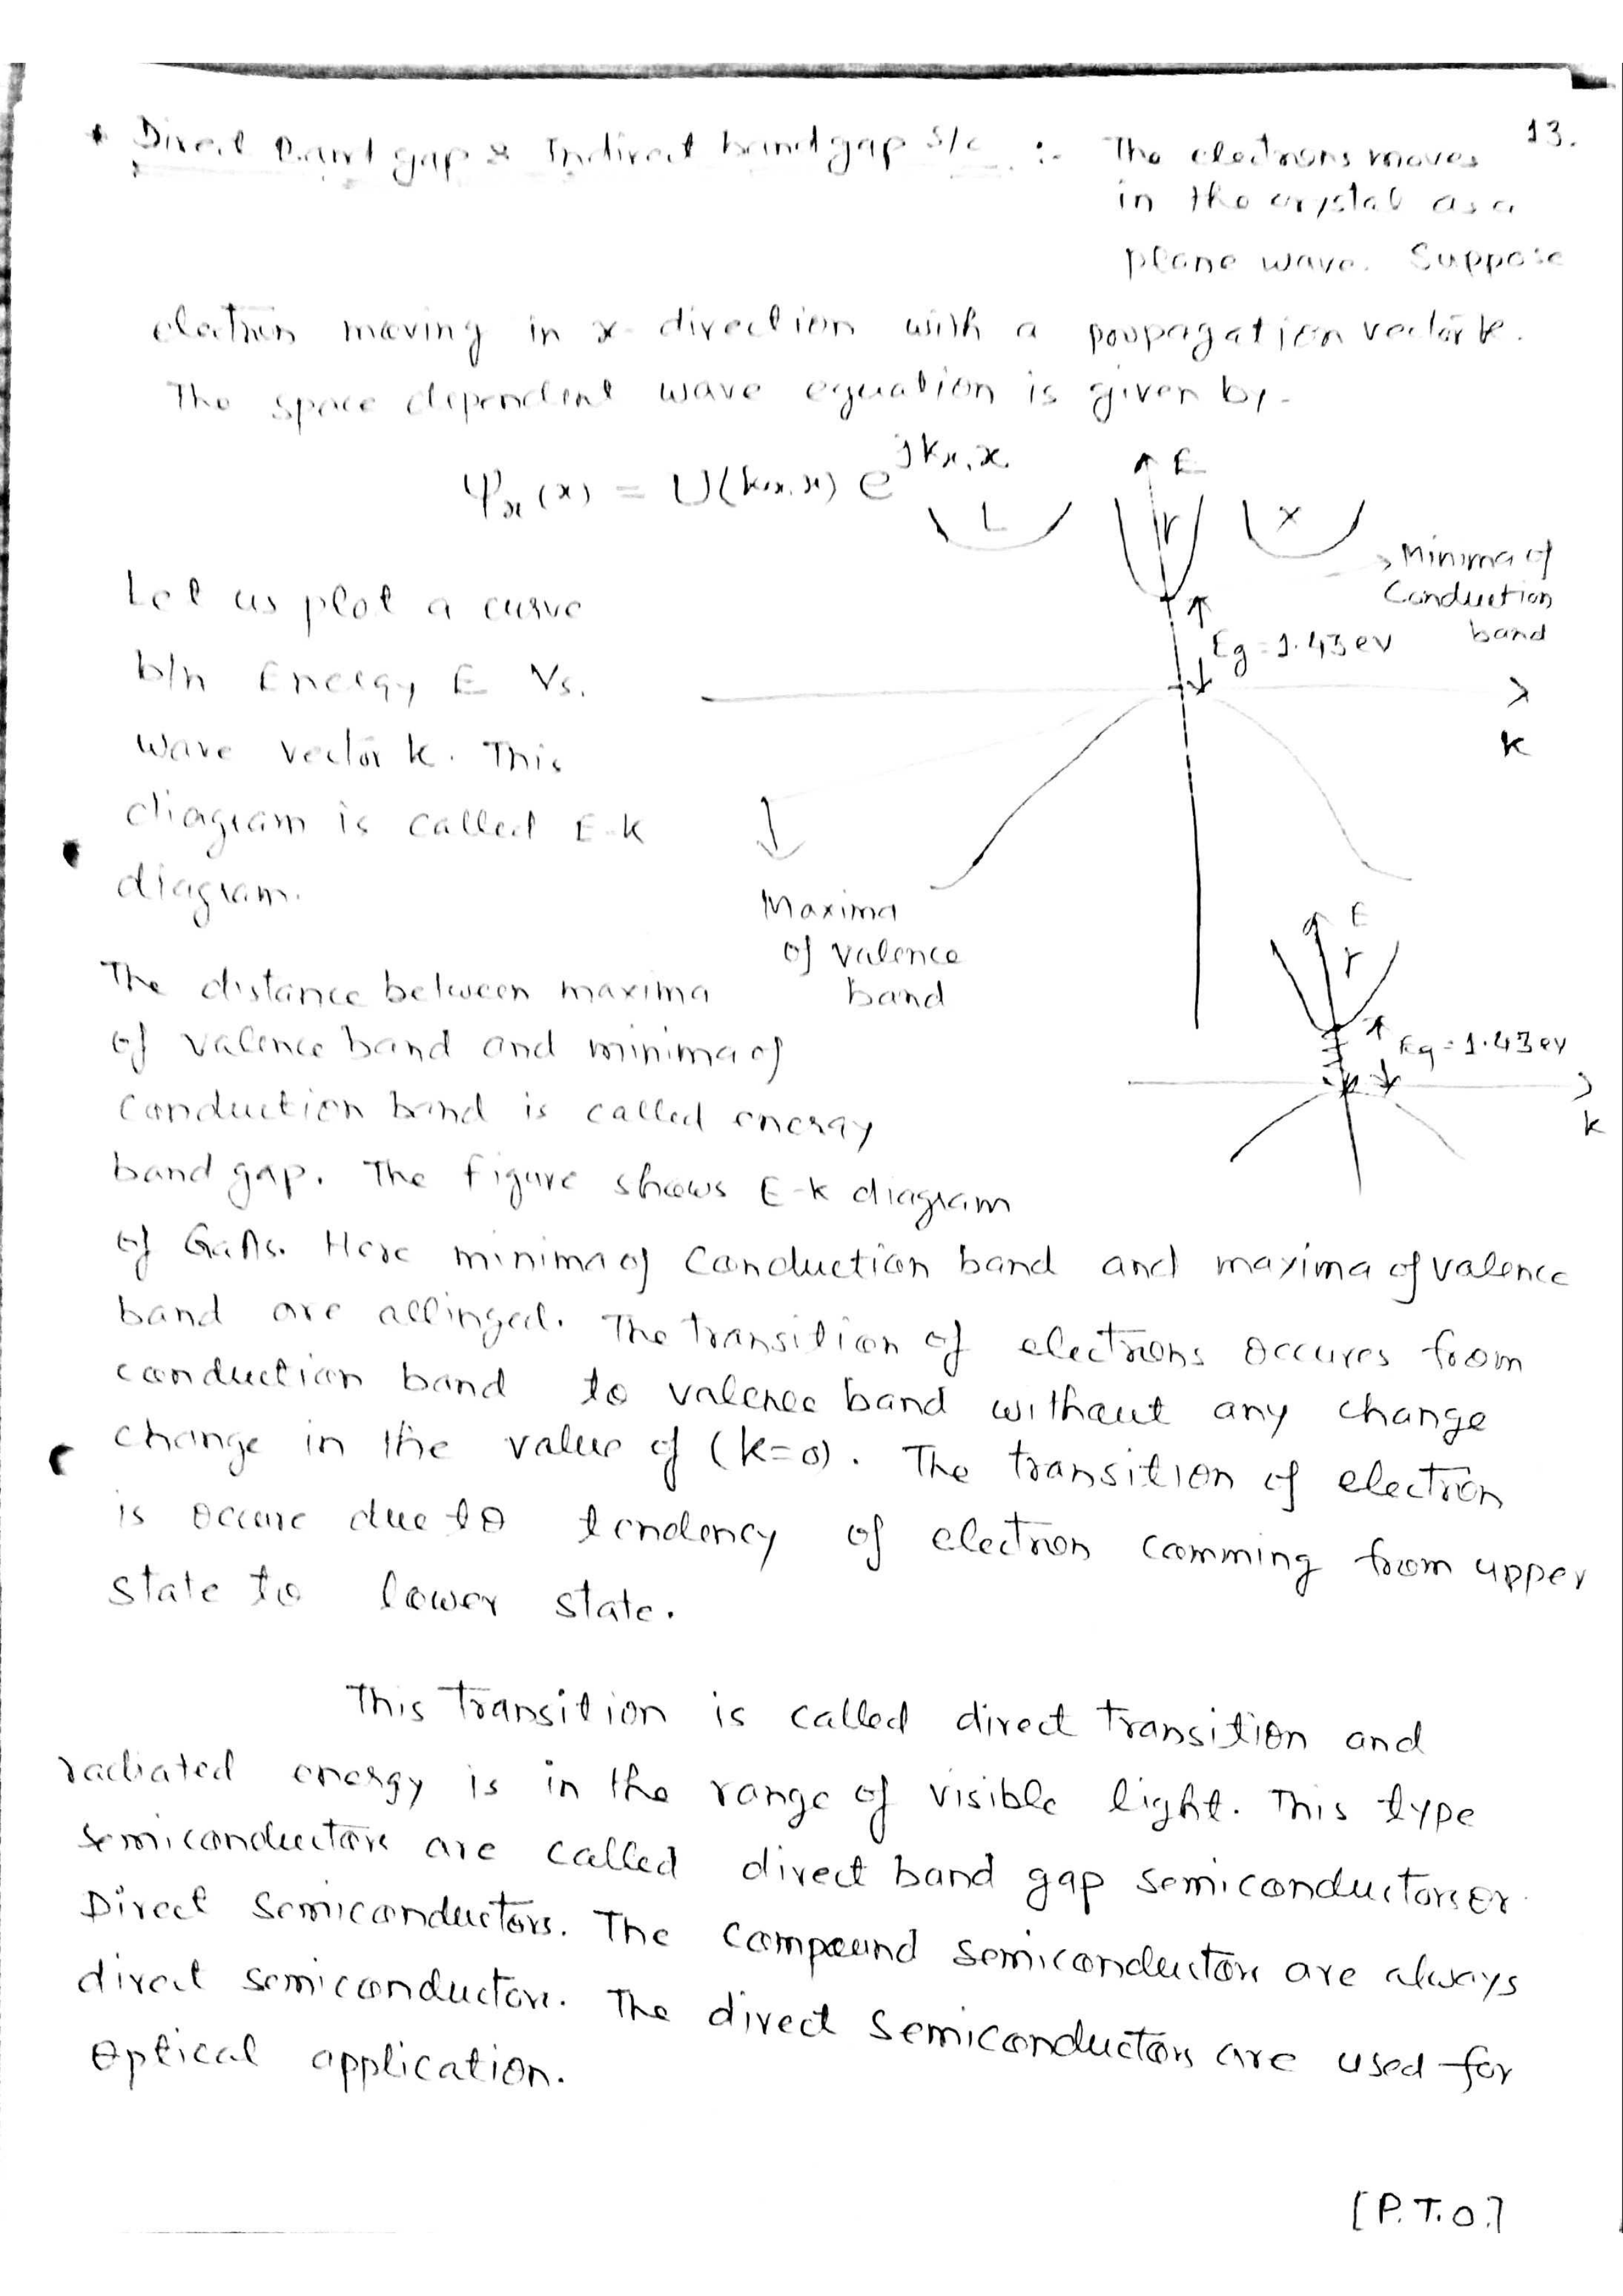 13.
* Direct Band gap & Indirect bandgap S/c :- The electrons moves
in the crystal as a
plane wave. Suppose
electron moving in x-direction with a poopagation vector k.
The space dependent wave equation is given by-
Ψx(x) = U(kx.x) e^jkx.x
E
L Γ X
Minima of
Conduction
band
Eg = 1.43ev
k
Let us plot a curve
b/n Energy E Vs.
wave vector k. This
diagram is called E-k
diagram.
Maxima
of valence
band
E
Γ
Eg = 1.43ev
k
The distance between maxima
of valence band and minima of
Conduction band is called energy
band gap. The figure shows E-k diagram
of GaAs. Here minima of Conduction band and maxima of valence
band are allinged. The transition of electrons occures from
conduction band to valence band without any change
change in the value of (k=0). The transition of electron
is occure due to tendency of electron comming from upper
state to lower state.
This transition is called direct transition and
radiated energy is in the range of visible light. This type
semiconductors are called direct band gap semiconductors or
Direct semiconductors. The compound semiconductors are always
direct semiconductors. The direct semiconductors are used for
optical application.
[P.T.O.]